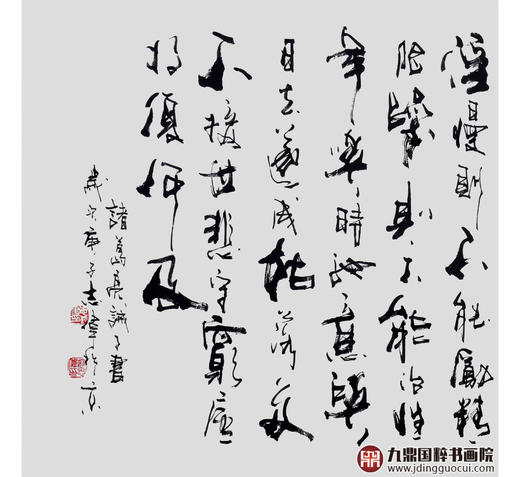 淫慢則不能勵精
險躁則不能治性
年與時馳意與
日去遂成枯落多
不接世悲守窮廬
將復何及
諸葛亮誡子書
歲次庚子志
九鼎国粹书画院
www.jdingguocui.com